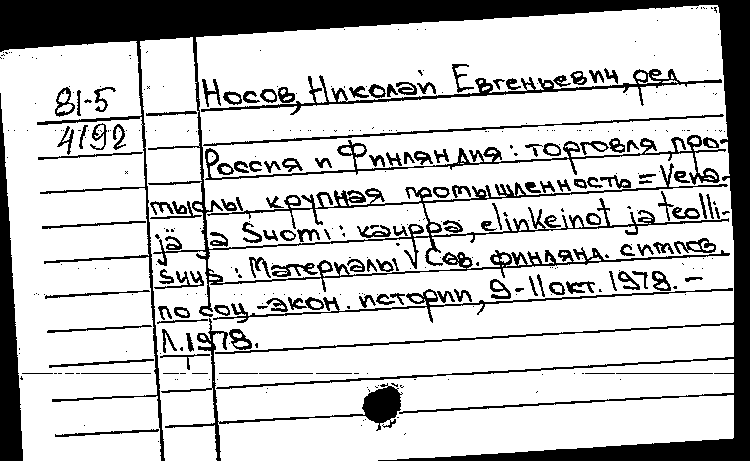 81-5
4192
Носов, Николай Евгеньевич, ред.
Россия и Финляндия: торговля, про-
мыслы, крупная промышленность = Venä-
jä ja Suomi: kauppa, elinkeinot ja teolli-
suus: Материалы V Сов. финлянд. симпоз.
по соц.-экон. истории, 9-11 окт. 1978. -
Л. 1978.